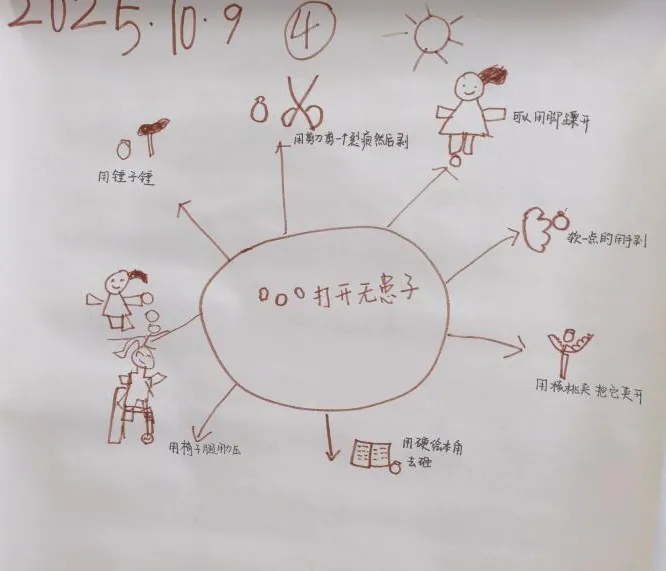 2025.10.9 ④
用剪刀剪一个裂痕然后剥
可以用脚踩开
用锤子锤
软一点的用手剥
打开无患子
用核桃夹把它夹开
用椅子腿用力压
用硬绘本角
去砸